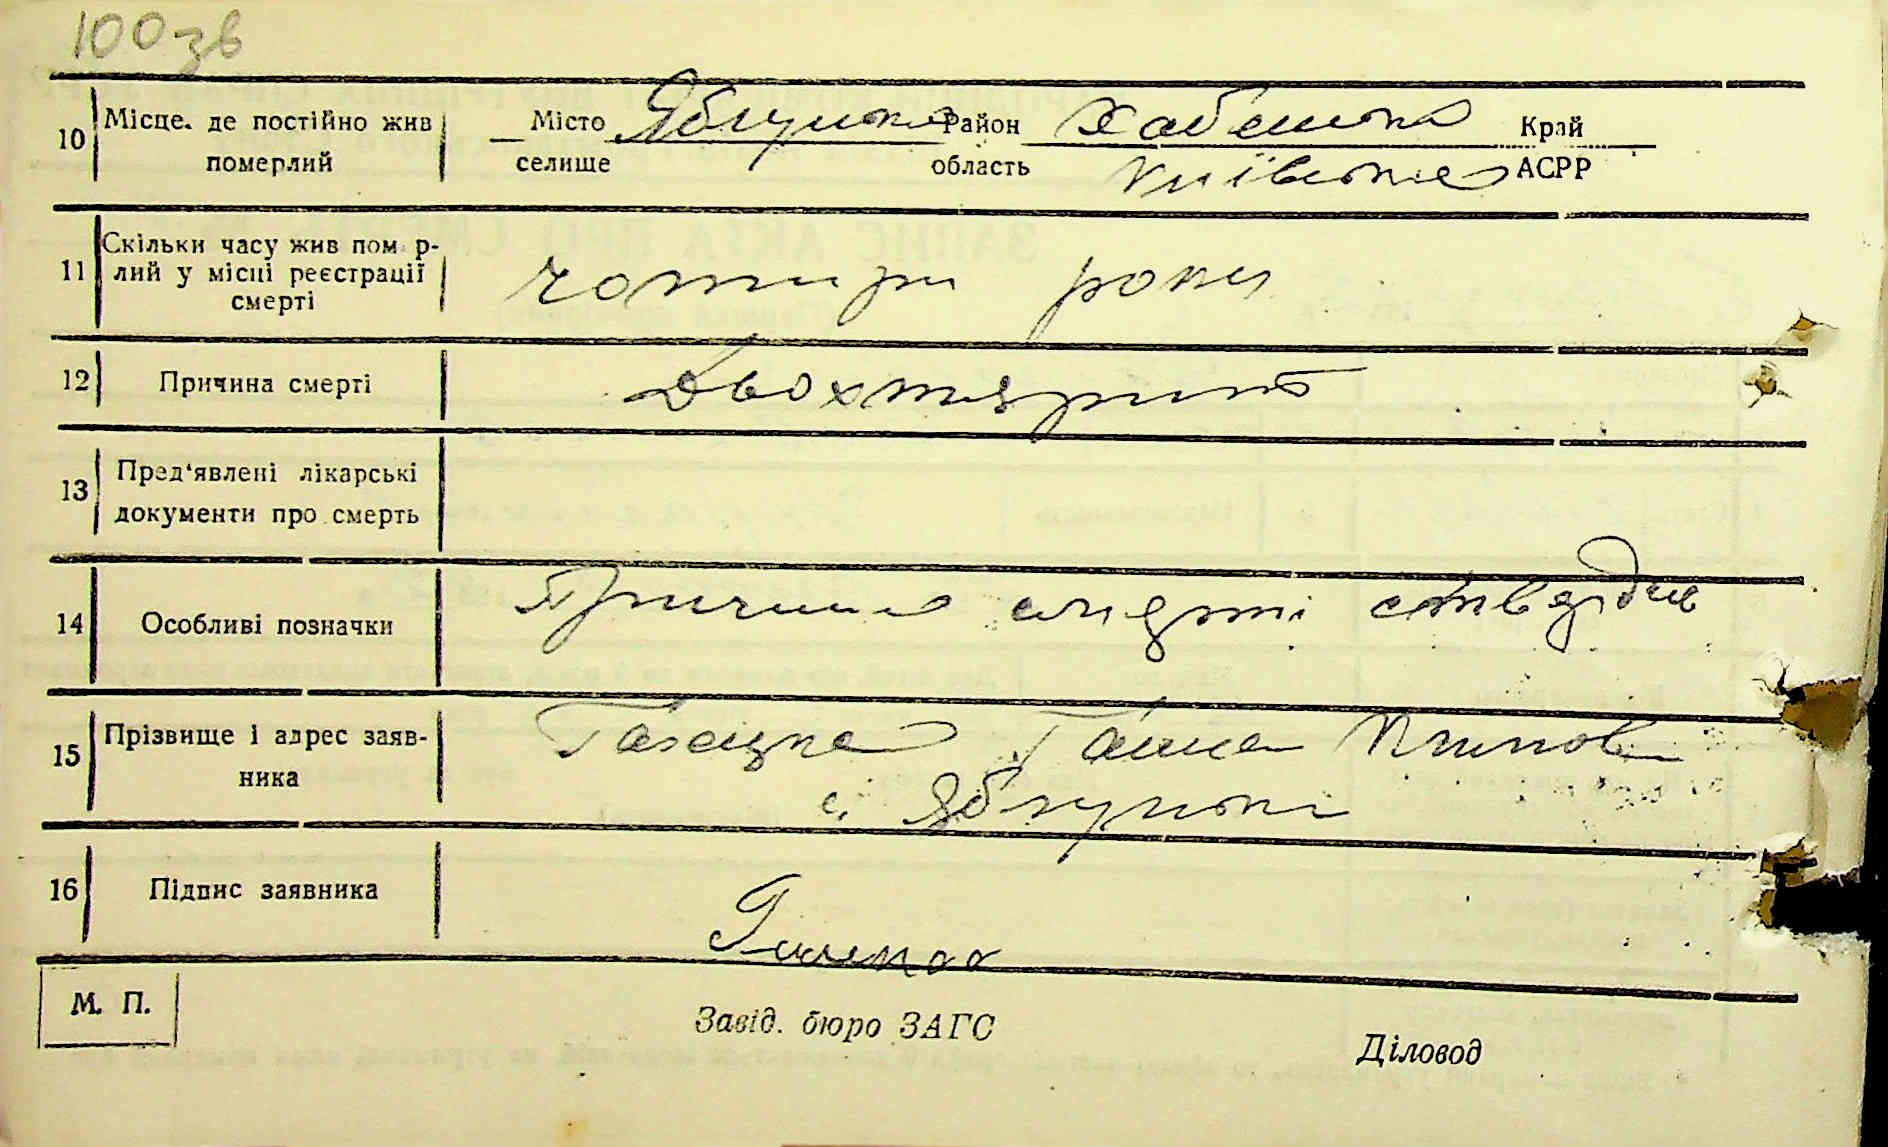 100 зв
10 Місце, де постійно жив померлий Місто Яблунька Район Хабенська Край
селище область Київська АСРР
11 Скільки часу жив пом р-
лий у місці реєстрації
смерті
чотири роки
12 Причина смерті Двохтярит
13 Пред‘явлені лікарські
документи про смерть
14 Особливі позначки Причина смерти ствердив
15 Прізвище і адрес заяв-
ника
Ганна
с. Яблунька
16 Підпис заявника
М. П.
Завід. бюро ЗАГС
Діловод